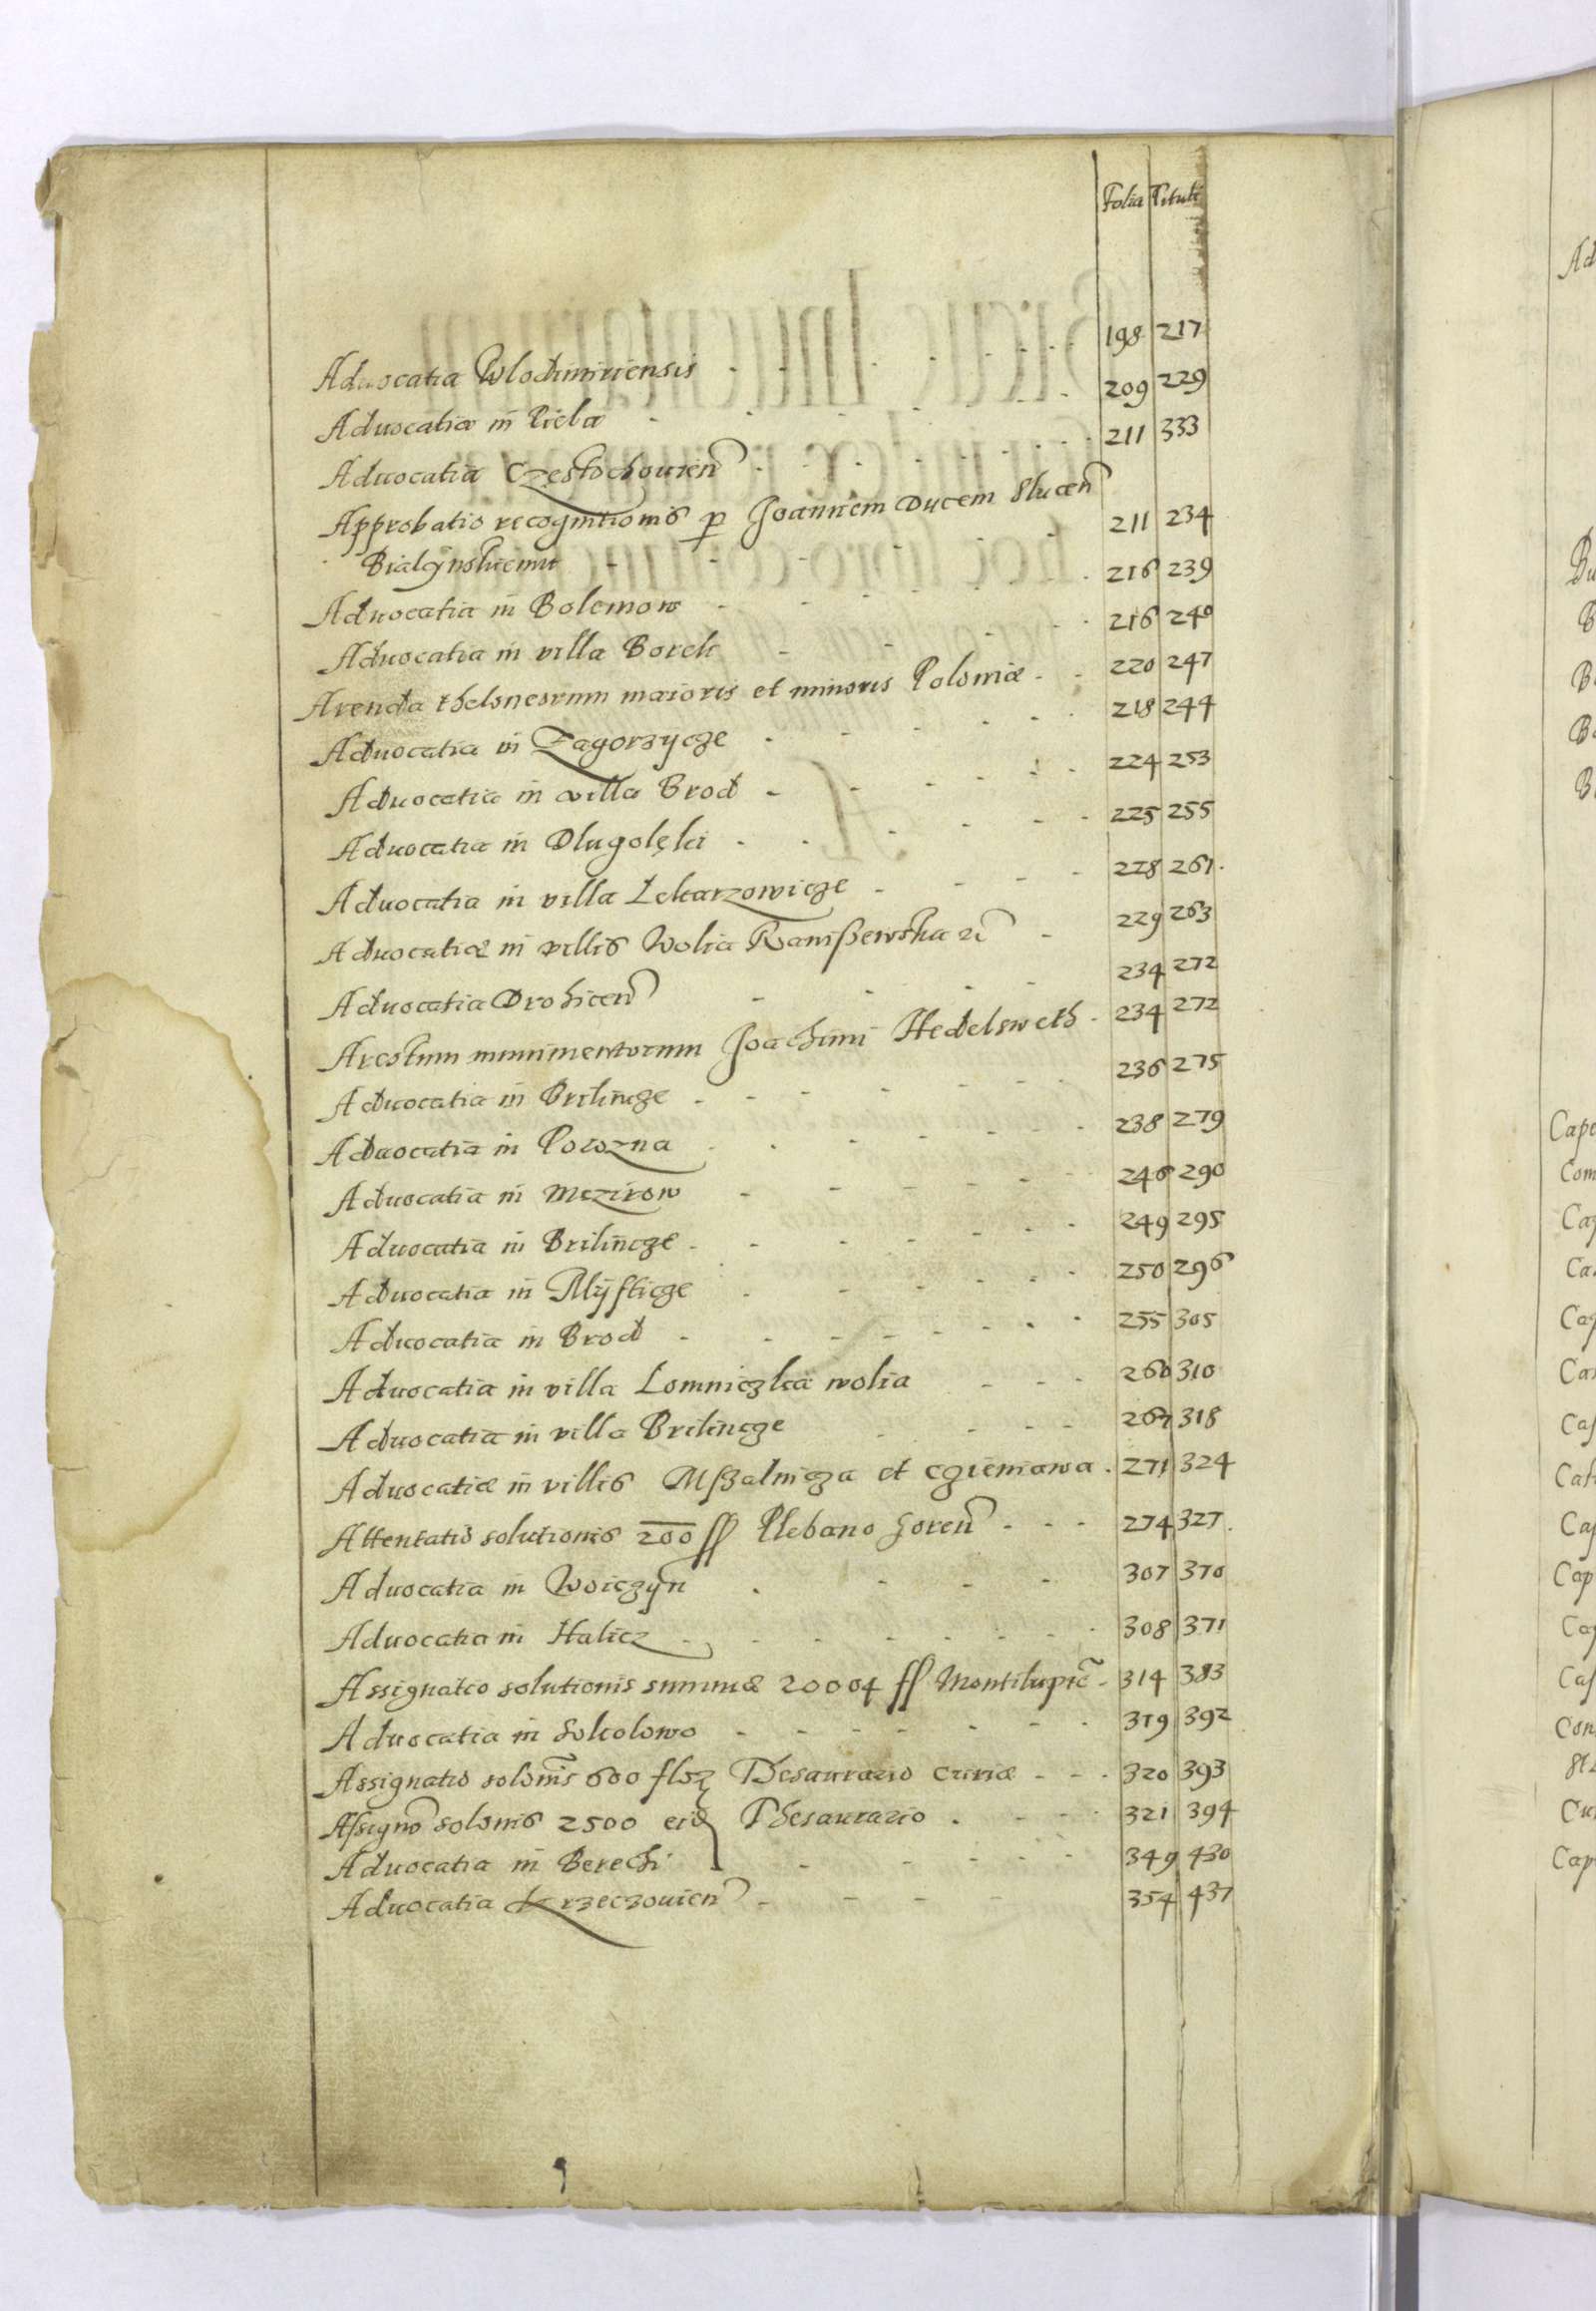 Folia Tituli
Aduocatia Wlodimiriensis - - - - - 198 217
Aduocatiæ in Rieba - - - - - - 209 229
Aduocatia Częstochouien - - - - - 211 333
Approbatio recognitionis p Joannem Ducem Slucen
Bialynskiemu - - - - - - 211 234
Aduocatia in Bolemow - - - - - 216 239
Aduocatia in villa Borek - - - - 216 240
Arenda theloneorum maioris et minoris Poloniæ - - 220 247
Aduocatia in Zagorzycze - - - - - 218 244
Aduocatia in villa Brod - - - - - 224 253
Aduocatia in Dlugolęka - - - - - - 225 255
Aduocatia in villa Lekarzowicze - - - - 228 261.
Aduocatiæ in villis Wolia Ranißewska - 229 263
Aduocatia Drohicen - - - - 234 272
Arestum munimentorum Joachimi Hedelsweth - 234 272
Aduocatia in Brilincze - - - - - - 236 275
Aduocatia in Porozna - - - - - - 238 279
Aduocatia in Mezirow - - - - - 246 290
Aduocatia in Brilincze - - - - - - 249 295
Aduocatia in Mysticze - - - - - 250 296
Aduocatia in Brod - - - - - - - 255 305
Aduocatia in villa Lomniczka wolia - - - 260 310
Aduocatia in villa Brilincze - - - - 267 318
Aduocatiæ in villis Mßalnicza et Czieniawa . 271 324
Attentatio solutionis 200 ff Plebano Goren - - - 274 327.
Aduocatia in Woiczyn - - - - 307 370
Aduocatia in Halicz - - - - - - 308 371
Assignatio solutionis summæ 20004 ff Montilupic - 314 383
Aduocatia in Sokolowo - - - - - - 319 392
Assignatio solonis 600 floz Thesaurario Curiæ - - - 320 393
Assigno solonis 2500 eid Thesaurario . - - - 321 394
Aduocatia in Berechi - - - - - 349 430
Aduocatia Krzeczouien - - - - 354 437